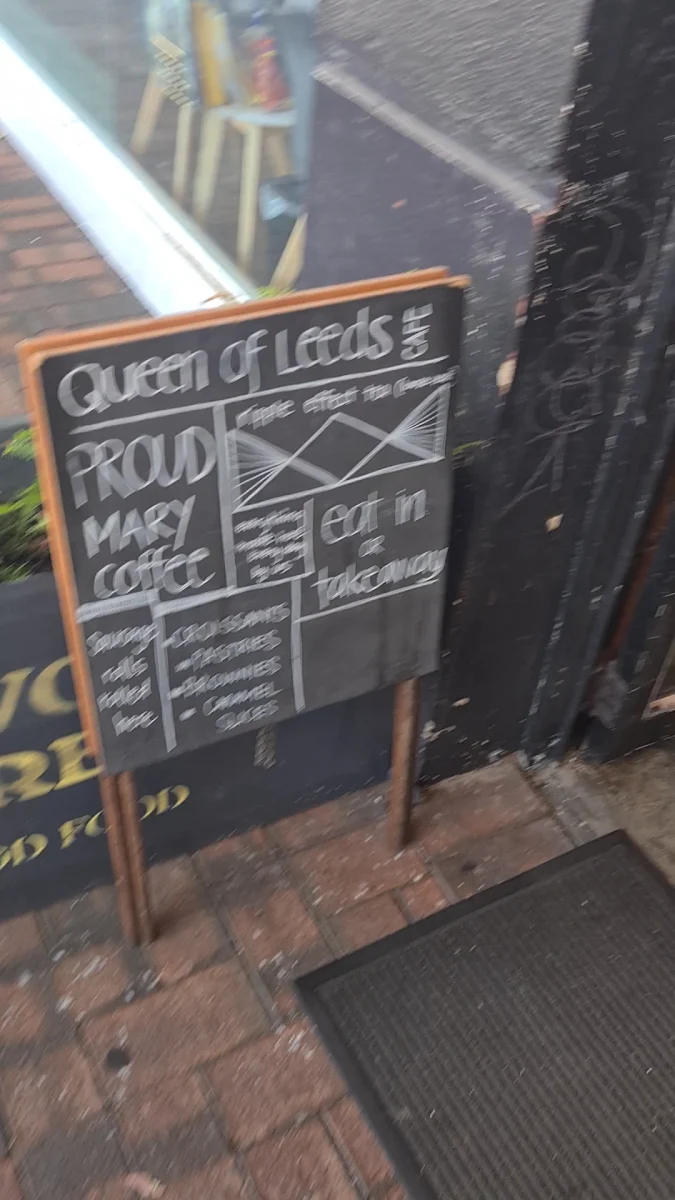 Queen of Leeds CAFE
ripple effect tea
PROUD
MARY
coffee
everything
made
eat in
or
takeaway
Sausage
rolls
rolled
here
- CROISSANTS
- PASTRIES
- BROWNIES
- CARAMEL
SLICES
FOOD